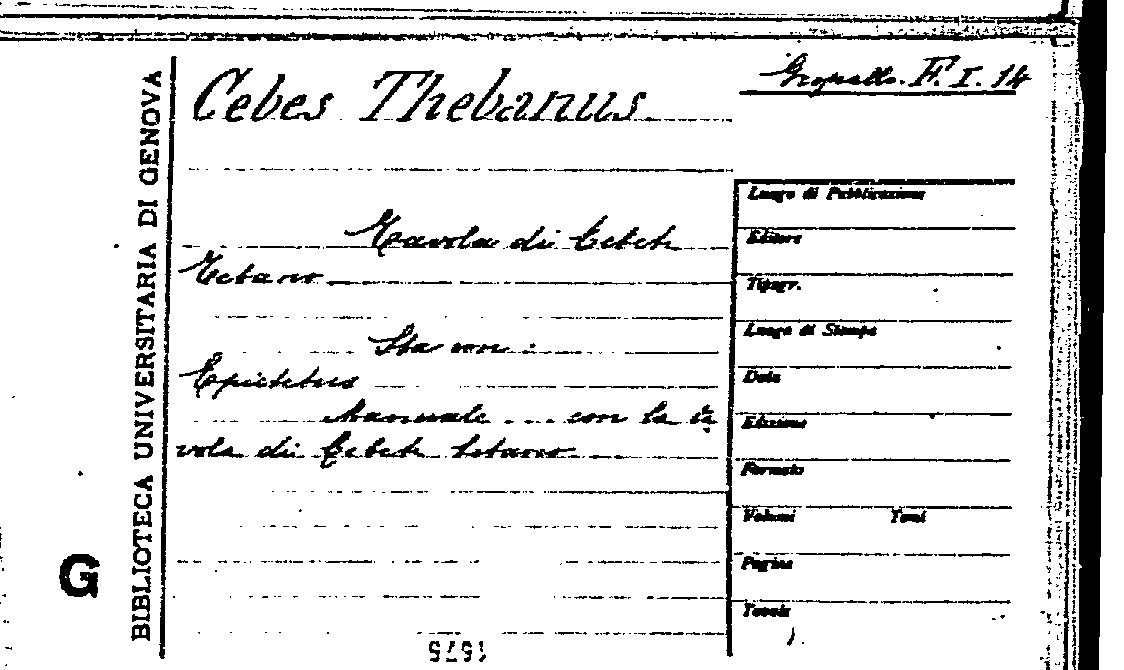 Cebes Thebanus
Gropallo. F. I. 14
Tavola di Cebete
Tebano
Sta con :
Epictetus
Manuale ... con la ta
vola di Cebete tebano
Luogo di Pubblicazione
Editore
Tipogr.
Luogo di Stampa
Data
Edizione
Formato
Volumi Tomi
Pagine
Tavole
BIBLIOTECA UNIVERSITARIA DI GENOVA
G
1675